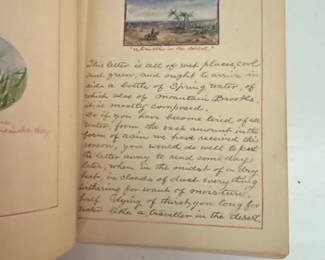 "a traveller in the desert."
This letter is all of wet places, cool
and green, and ought to arrive in
side a bottle of Spring water, of
which also of mountain Brooks,
it is mostly composed.
So if you have become tired of all
water from the vast amount in the
form of rain, we have received this
season, you would do well to put
the letter away to read some day
later, when in the midst of a dry
heat, in clouds of dust everything
withering for want of moisture,
half dying of thirst you long for
water like a traveller in the desert
day